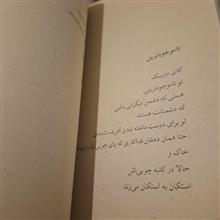 ناموجودترین
آقای مترسک
تو ناموجودترینی
هستی که دشمن دیگرانی باشی
که دشمنانت هستند
تو برای دوست داشته شدن آفریده نشده‌ای
حتا همان دهقان فداکاری که پای چوبی‌ات را
خاک و
حالا در کلبه چوبی‌اش
استکان به استکان می‌زند